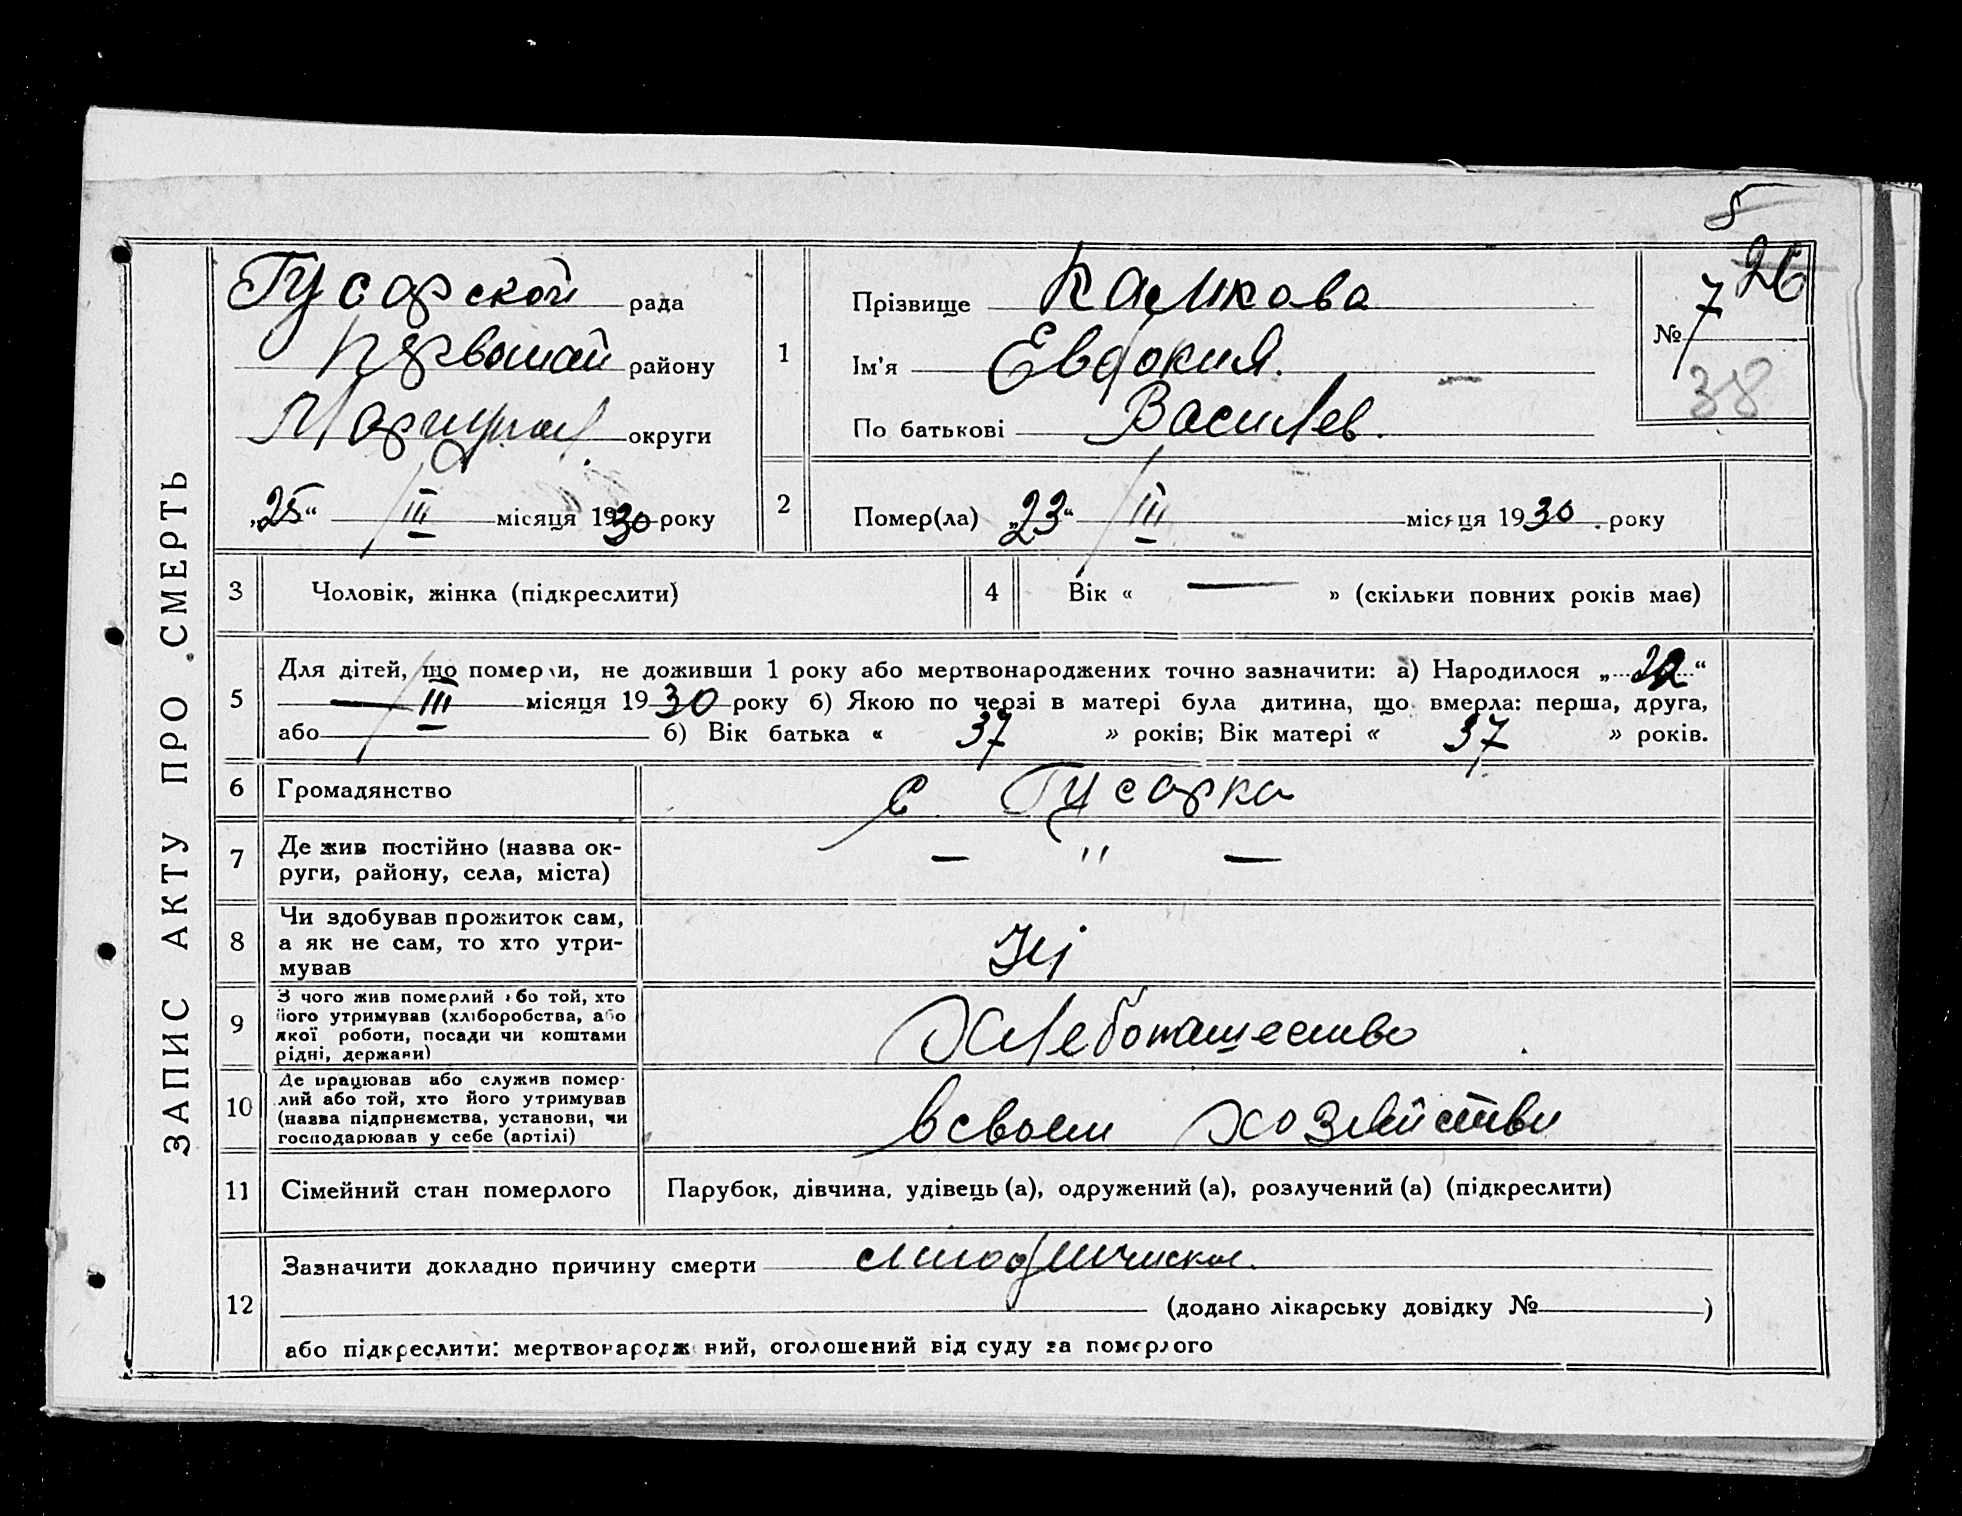 5
26
ЗАПИС АКТУ ПРО СМЕРТЬ
Гусарской рада
Первомай району
Мариупол округи
„25“ III місяця 1930 року
1
Прізвище Калмкова
Ім'я Евдокия.
По батькові Василев.
№ 7
38
2
Помер(ла) „23“ III місяця 1930 року
3 Чоловік, жінка (підкреслити)
4 Вік « — » (скільки повних років має)
5
Для дітей, що померли, не доживши 1 року або мертвонароджених точно зазначити: а) Народилося „22“
— III місяця 1930 року б) Якою по черзі в матері була дитина, що вмерла: перша, друга,
або б) Вік батька « 37 » років; Вік матері « 37 » років.
6 Громадянство с Гусарка
7 Де жив постійно (назва ок-
руги, району, села, міста) — " —
8 Чи здобував прожиток сам,
а як не сам, то хто утри-
мував
Ні
9 З чого жив померлий або той, хто
його утримував (хліборобства, або
якої роботи, посади чи коштами
рідні, держави)
Хлебопашество
10 Де працював або служив помер-
лий або той, хто його утримував
(назва підприємства, установи, чи
господарював у себе (артілі)
в своем хозяйстви
11 Сімейний стан померлого Парубок, дівчина, удівець (а), одружений (а), розлучений (а) (підкреслити)
12
Зазначити докладно причину смерти
(додано лікарську довідку № )
або підкреслити: мертвонароджений, оголошений від суду за померлого